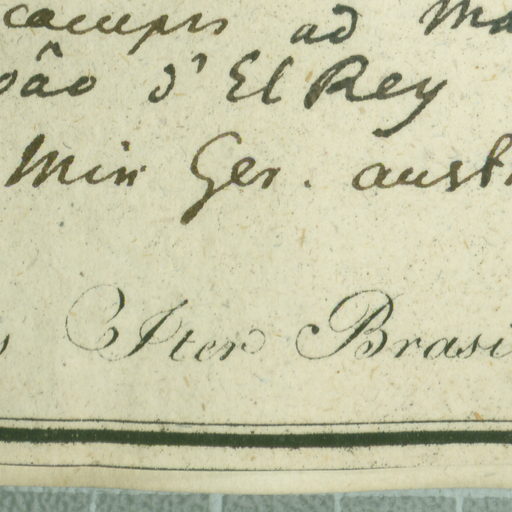 campis ad Ma
oâo d'El Rey
Min Ger. austr
s Iter Brasi